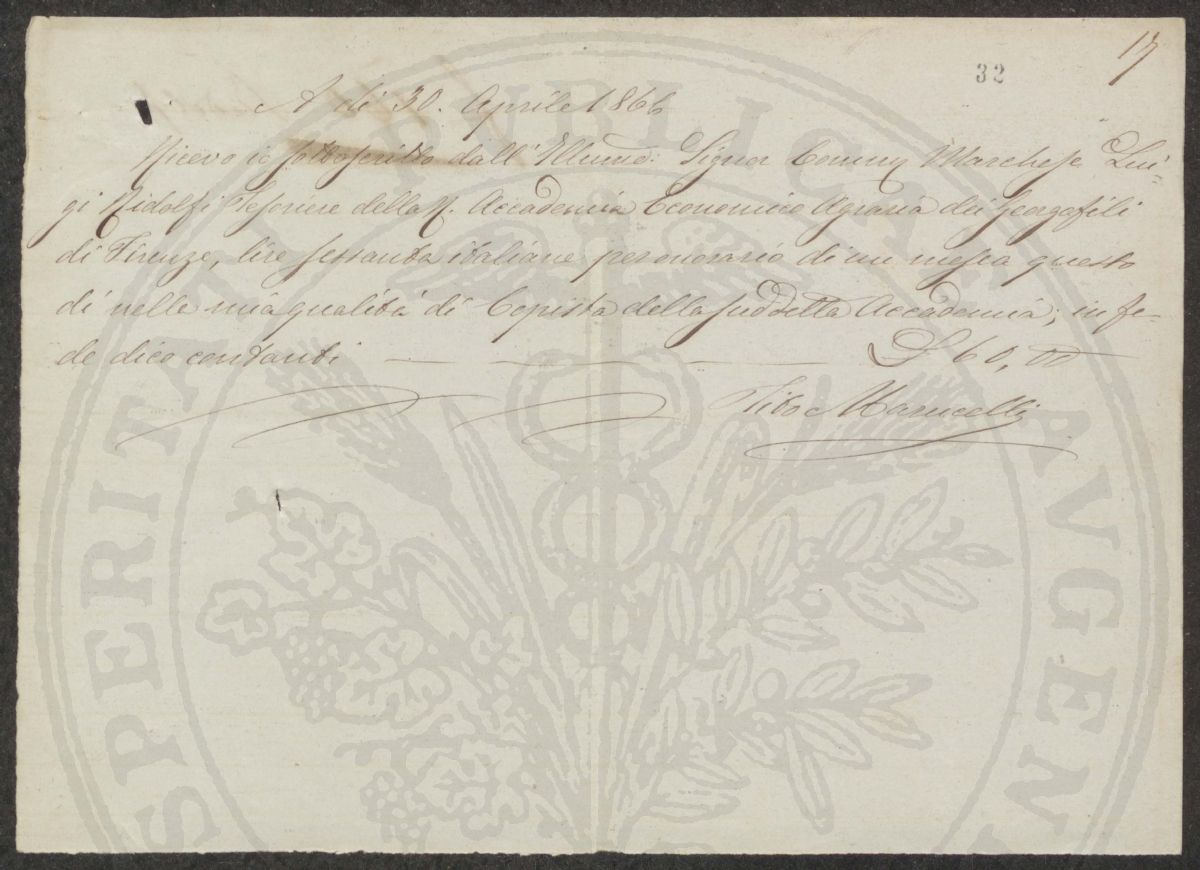 17
32
A dì 30. Aprile 1866
Ricevo io sottoscritto dall' Illumo: Signor Commr Marchese Lui-
gi Ridolfi Tesoriere della R. Accademia Economico Agraria dei Georgofili
di Firenze, lire sessanta italiane per onorario di un mese a questo
dì nella mia qualità di Copista della suddetta Accademia; in fe-
de dico contanti — — — £ 60,00
Tito Marucelli
PROSPERITATI PUBLICAE AUGEN